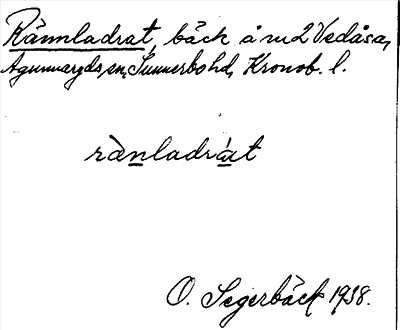 Rännladrat, bäck å m 2 Vedåsa,
Agunnaryds sn, Sunnerbo hd, Kronob. l.
rànladrát
O. Segerbäck 1938.